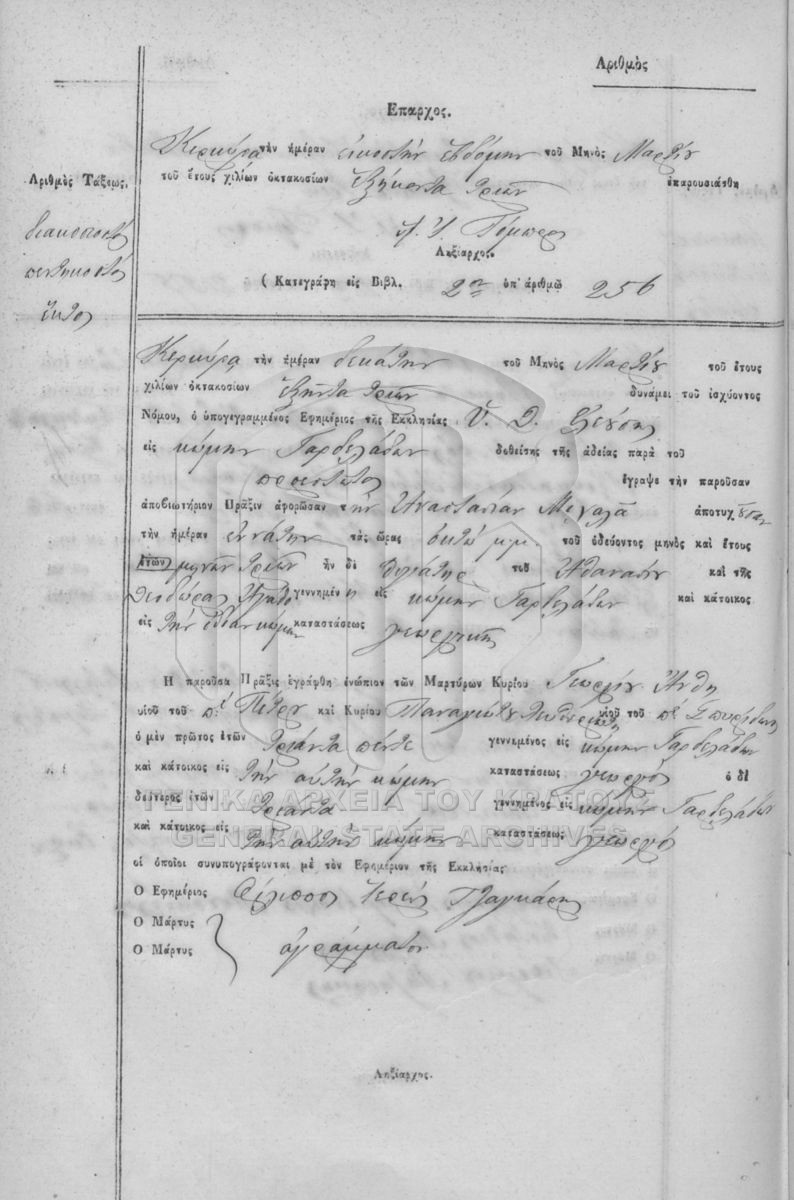 Αριθμὸς
Επαρχος.
Αριθμὸς Τάξεως.
διακοσιοστὸς
πεντηκοστὸς
ἕκτος
Κερκύρα τὴν ἡμέραν εἰκοστὴν ἑβδόμην τοῦ Μηνὸς Μαρτίου
τοῦ ἔτους χιλίων ὀκτακοσίων ἑξήκοντα τριῶν ἐπαρουσιάσθη
Ληξίαρχος.
( Κατεγράφη εἰς Βιβλ. 2ον ὑπ' ἀριθμῷ 256
Κερκύρα τὴν ἡμέραν δεκάτην τοῦ Μηνὸς Μαρτίου τοῦ ἔτους
χιλίων ὀκτακοσίων ἑξῆντα τριῶν δυνάμει τοῦ ἰσχύοντος
Νόμου, ὁ ὑπογεγραμμένος Ἐφημέριος τῆς Εκκλησίας Ὑ. Θ.
εἰς κώμην Γαρδελάδων δοθείσης τῆς ἀδείας παρὰ τοῦ
προεστῶτος ἔγραψε τὴν παροῦσαν
ἀποβιωτήριον Πρᾶξιν ἀφορῶσαν τὴν Ἀναστασίαν Μιχαλᾶ ἀποτυχοῦσαν
τὴν ἡμέραν ἐννάτην τὰς ὥρας ὀκτὼ μμ τοῦ ὁδεύοντος μηνὸς καὶ ἔτους
ἐτῶν μηνῶν τριῶν ἦν δὲ θυγάτηρ τοῦ Ἀθανασίου καὶ τῆς
Θεοδώρας γεννημένη εἰς κώμην Γαρδελάδων καὶ κάτοικος
εἰς τὴν ἰδίαν κώμην καταστάσεως γεωργικῆς
Η παροῦσα Πρᾶξις ἐγράφθη ἐνώπιον τῶν Μαρτύρων Κυρίου Γεωργίου Ἄνθη
υἱοῦ τοῦ πὲ Πέτρου καὶ Κυρίου Παναγιώτου υἱοῦ τοῦ πὲ Σπυρίδωνος
ὁ μὲν πρῶτος ἐτῶν τριάντα πέντε γεννημένος εἰς κώμην Γαρδελάδων
καὶ κάτοικος εἰς τὴν αὐτὴν κώμην καταστάσεως γεωργὸς ὁ δὲ
δεύτερος ἐτῶν τριάντα γεννημένος εἰς κώμην Γαρδελάδων
καὶ κάτοικος εἰς τὴν αὐτὴν κώμην καταστάσεως γεωργὸς
οἱ ὁποῖοι συνυπογράφονται μὲ τὸν Εφημέριον τῆς Εκκλησίας
Ο Εφημέριος Φίλιππος Ἱερεὺς Τζαγκάρης
Ο Μάρτυς
Ο Μάρτυς ἀγράμματοι
Ληξίαρχος.
ΓΕΝΙΚΑ ΑΡΧΕΙΑ ΤΟΥ ΚΡΑΤΟΥΣ
GENERAL STATE ARCHIVES